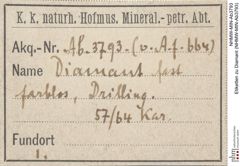 K. k. naturh. Hofmus. Mineral.- petr. Abt.
Akq.-Nr. Ab. 3793. (v. A.f. 664)
Name Diamant fast
farblos, Drilling.
57/64 Kar.
Fundort
1.
NHMW-MIN-Ab3793
Etiketten zu Diamant (NHMW-MIN-Ab3793)